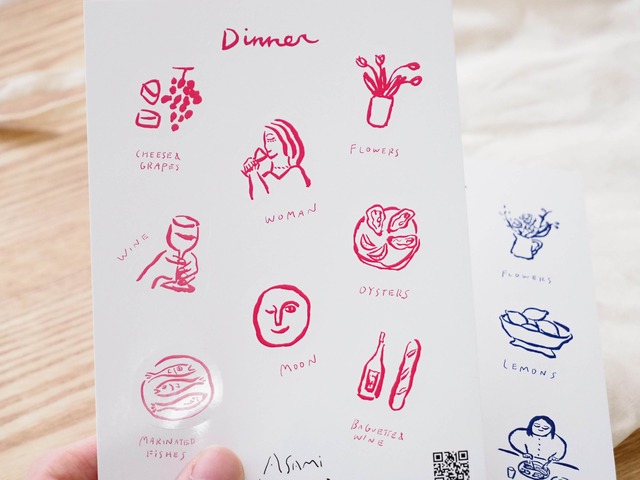 Dinner
CHEESE &
GRAPES
WOMAN
FLOWERS
WINE
OYSTERS
MOON
MARINATED
FISHES
BAGUETTE &
WINE
Asami
FLOWERS
LEMONS